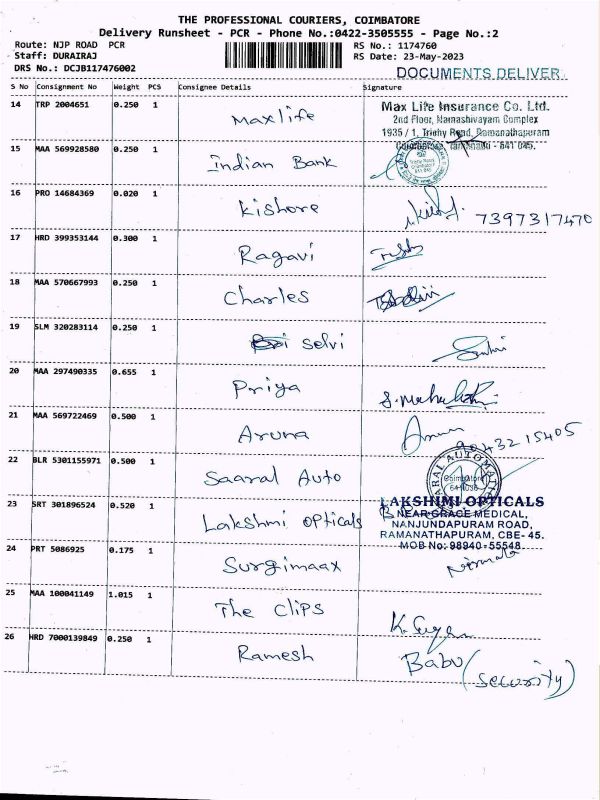 THE PROFESSIONAL COURIERS, COIMBATORE
Delivery Runsheet - PCR - Phone No.:0422-3505555 - Page No.:2
Route: NJP ROAD PCR
Staff: DURAIRAJ
DRS No.: DCJB117476002
RS No.: 1174760
RS Date: 23-May-2023
DOCUMENTS DELIVER
S No Consignment No Weight PCS Consignee Details Signature
14 TRP 2004651 0.250 1 Maxlife
Max Life Insurance Co. Ltd.
2nd Floor, Namashivayam Complex
1935 / 1, Trichy Road, Ramanathapuram
Coimbatore, Tamilnadu - 641 045.
15 MAA 569928580 0.250 1 Indian Bank
16 PRO 14684369 0.020 1 Kishore 7397317470
17 HRD 399353144 0.300 1 Ragavi
18 MAA 570667993 0.250 1 Charles
19 SLM 320283114 0.250 1 Selvi
20 MAA 297490335 0.655 1 Priya
21 MAA 569722469 0.500 1 Aruna
9043215405
22 BLR 5301155971 0.500 1 Saaral Auto
Coimbatore
23 SRT 301896524 0.520 1 Lakshmi opticals
LAKSHIMI OPTICALS
NEAR GRACE MEDICAL,
NANJUNDAPURAM ROAD,
RAMANATHAPURAM, CBE- 45.
MOB No: 98940-55548
24 PRT 5086925 0.175 1 Surgimaax Nirmala
25 MAA 100041149 1.015 1 The Clips
26 HRD 7000139849 0.250 1 Ramesh Babu
(Security)